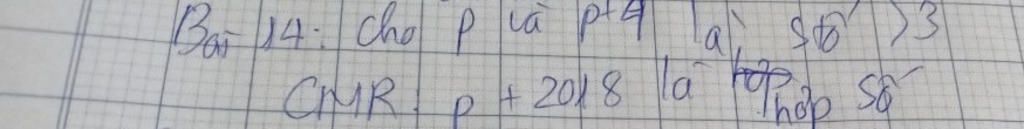 Bài 14: Cho p và p+4 là số >3
CMR: p + 2018 là hợp số